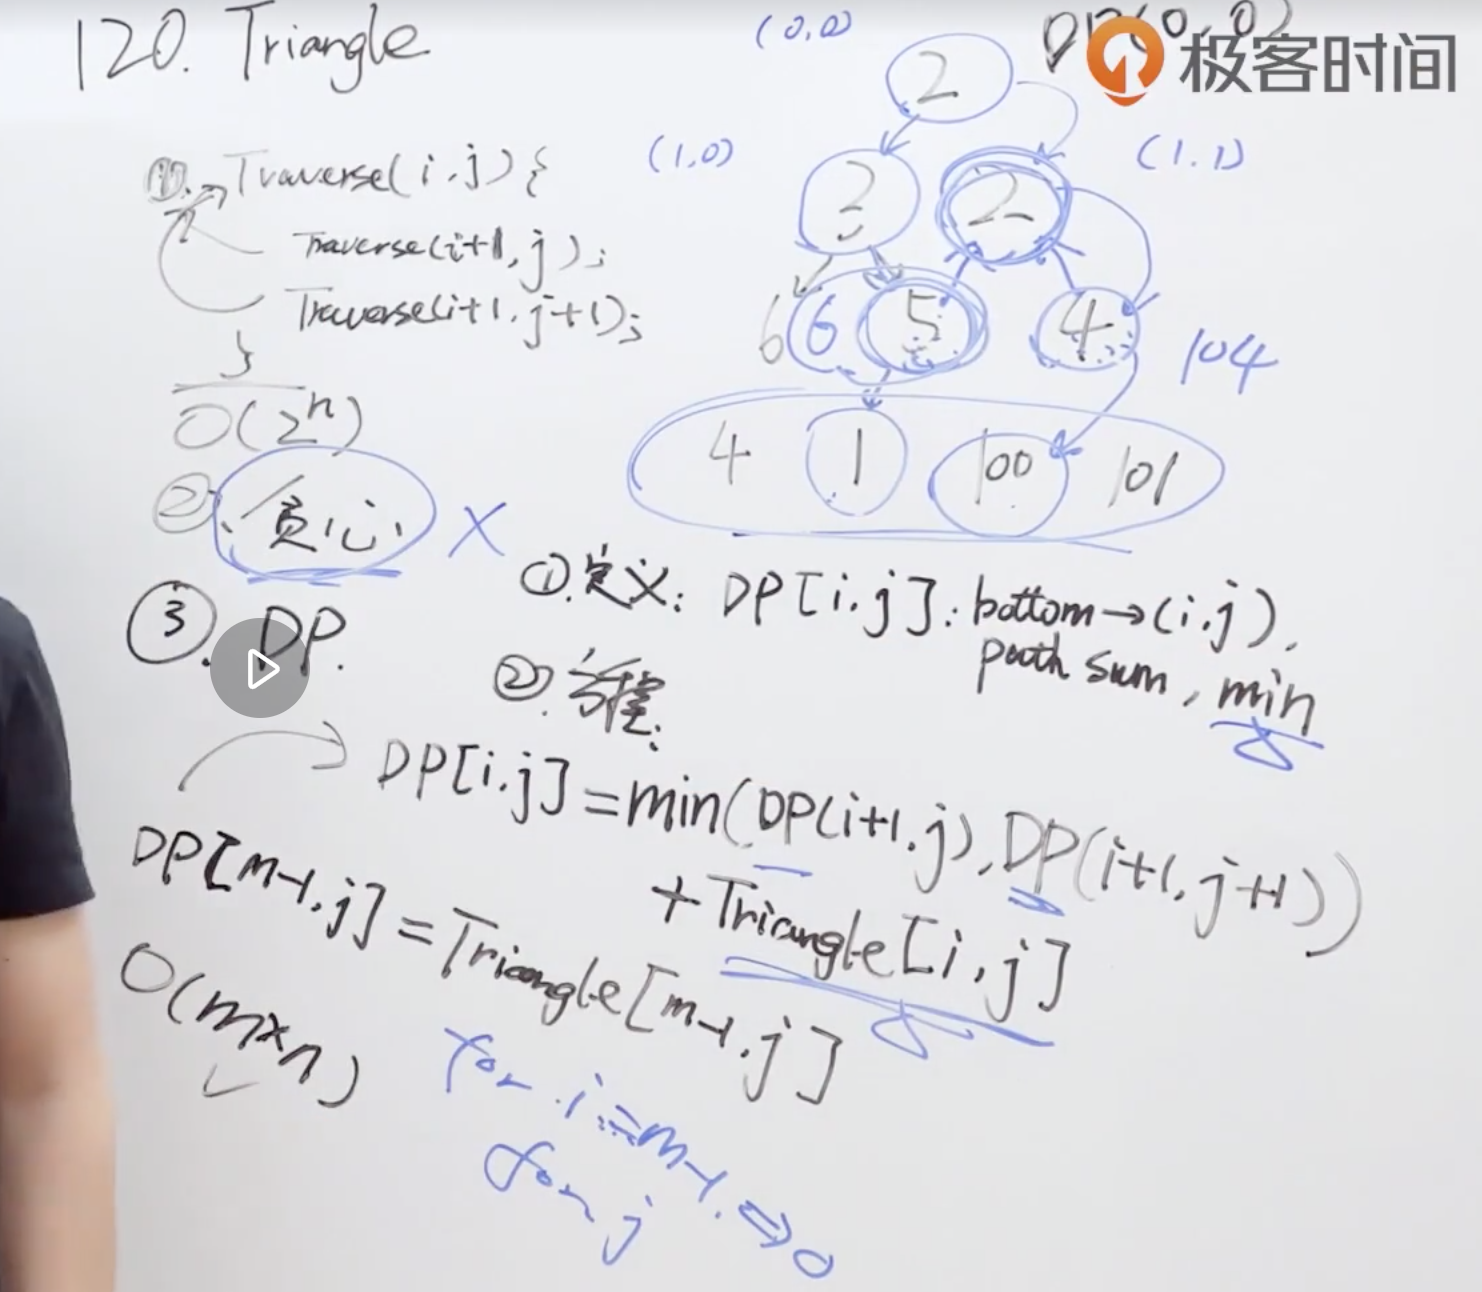 120. Triangle
(0,0)
DP(0,0)
极客时间
2
(1,0)
(1.1)
3
2
①. Traverse(i,j){
Traverse(i+1,j);
Traverse(i+1,j+1);
}
6
6
5
4
104
O(2^n)
4
1
100
101
②. 贪心 X
③. DP.
①.定义: DP[i,j]: bottom→(i,j),
path sum, min
②.方程:
DP[i,j]=min(DP(i+1,j),DP(i+1,j+1))
+Triangle[i,j]
DP[m-1,j]=Triangle[m-1,j]
O(m×n)
for i=m-1.⇒0
for j